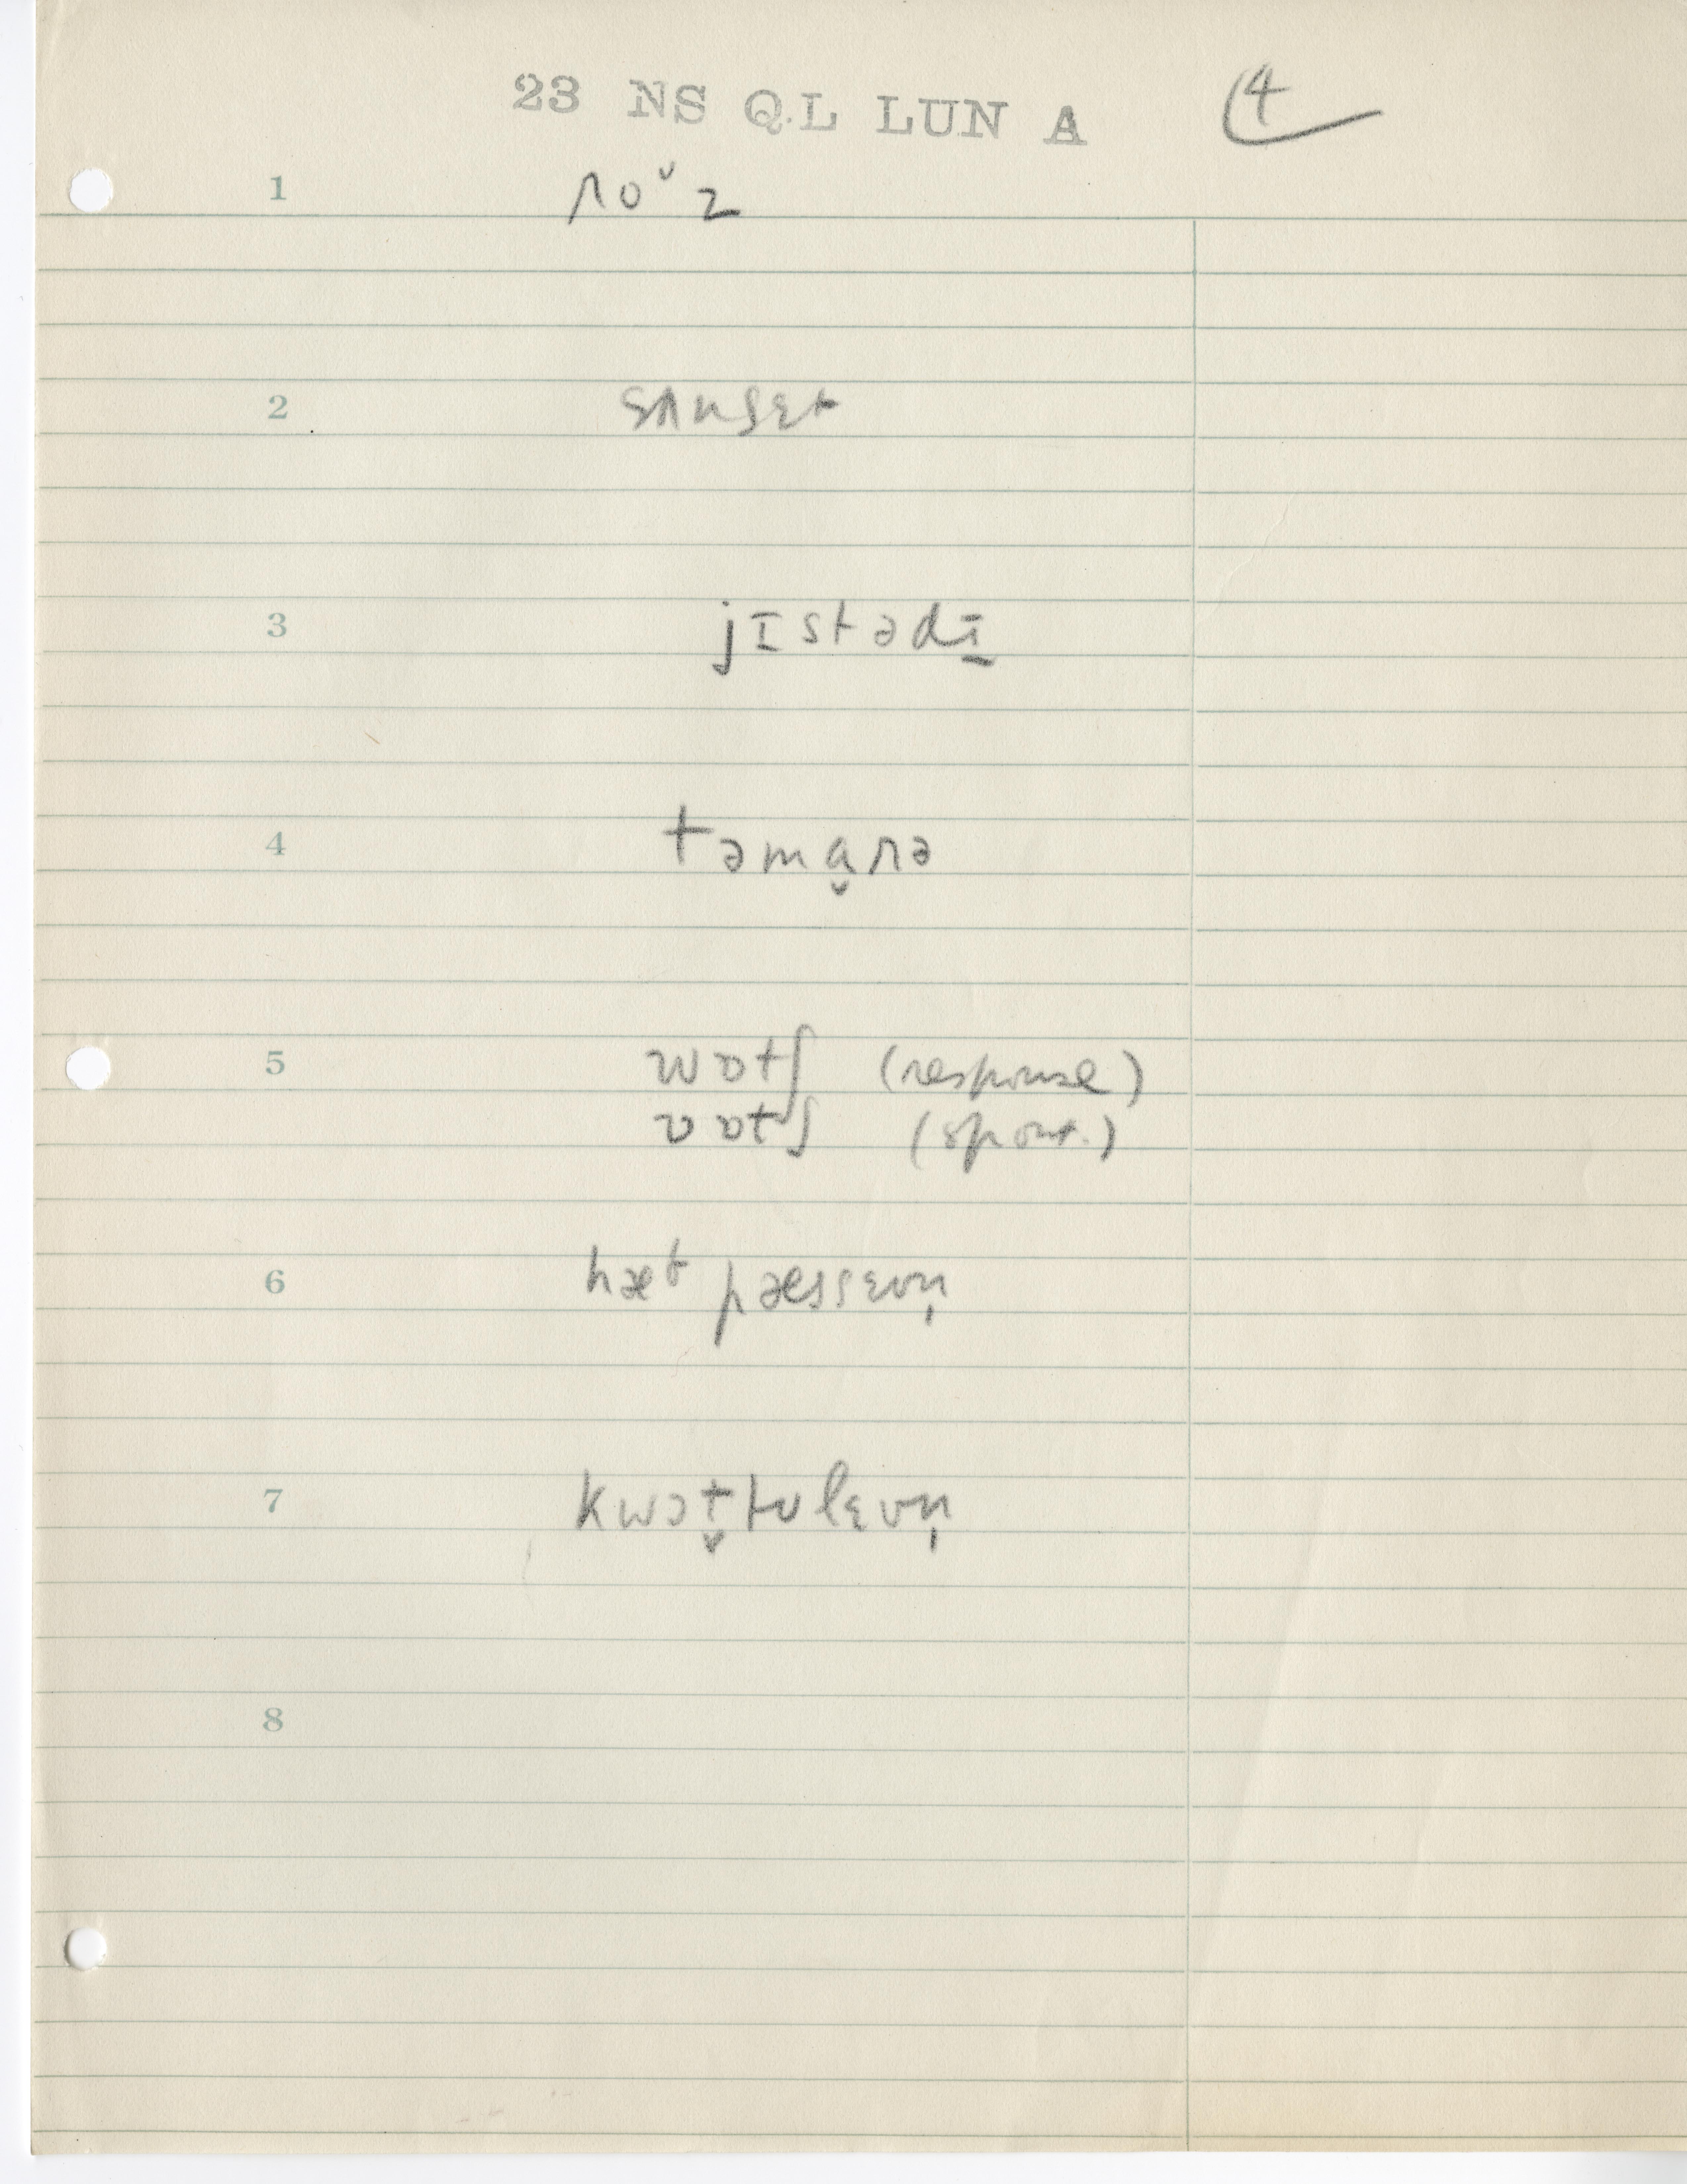 23 NS QL LUN A 4
1 roᶷz
2 sʌnsɛt
3 jɪstədɪ̠
4 təmɑ̬rə
5 wɒtʃ (response)
ʋɒtʃ (spont.)
6 hæt pæssɛvn̩
7 kwɔt̬tʊlɛvn̩
8